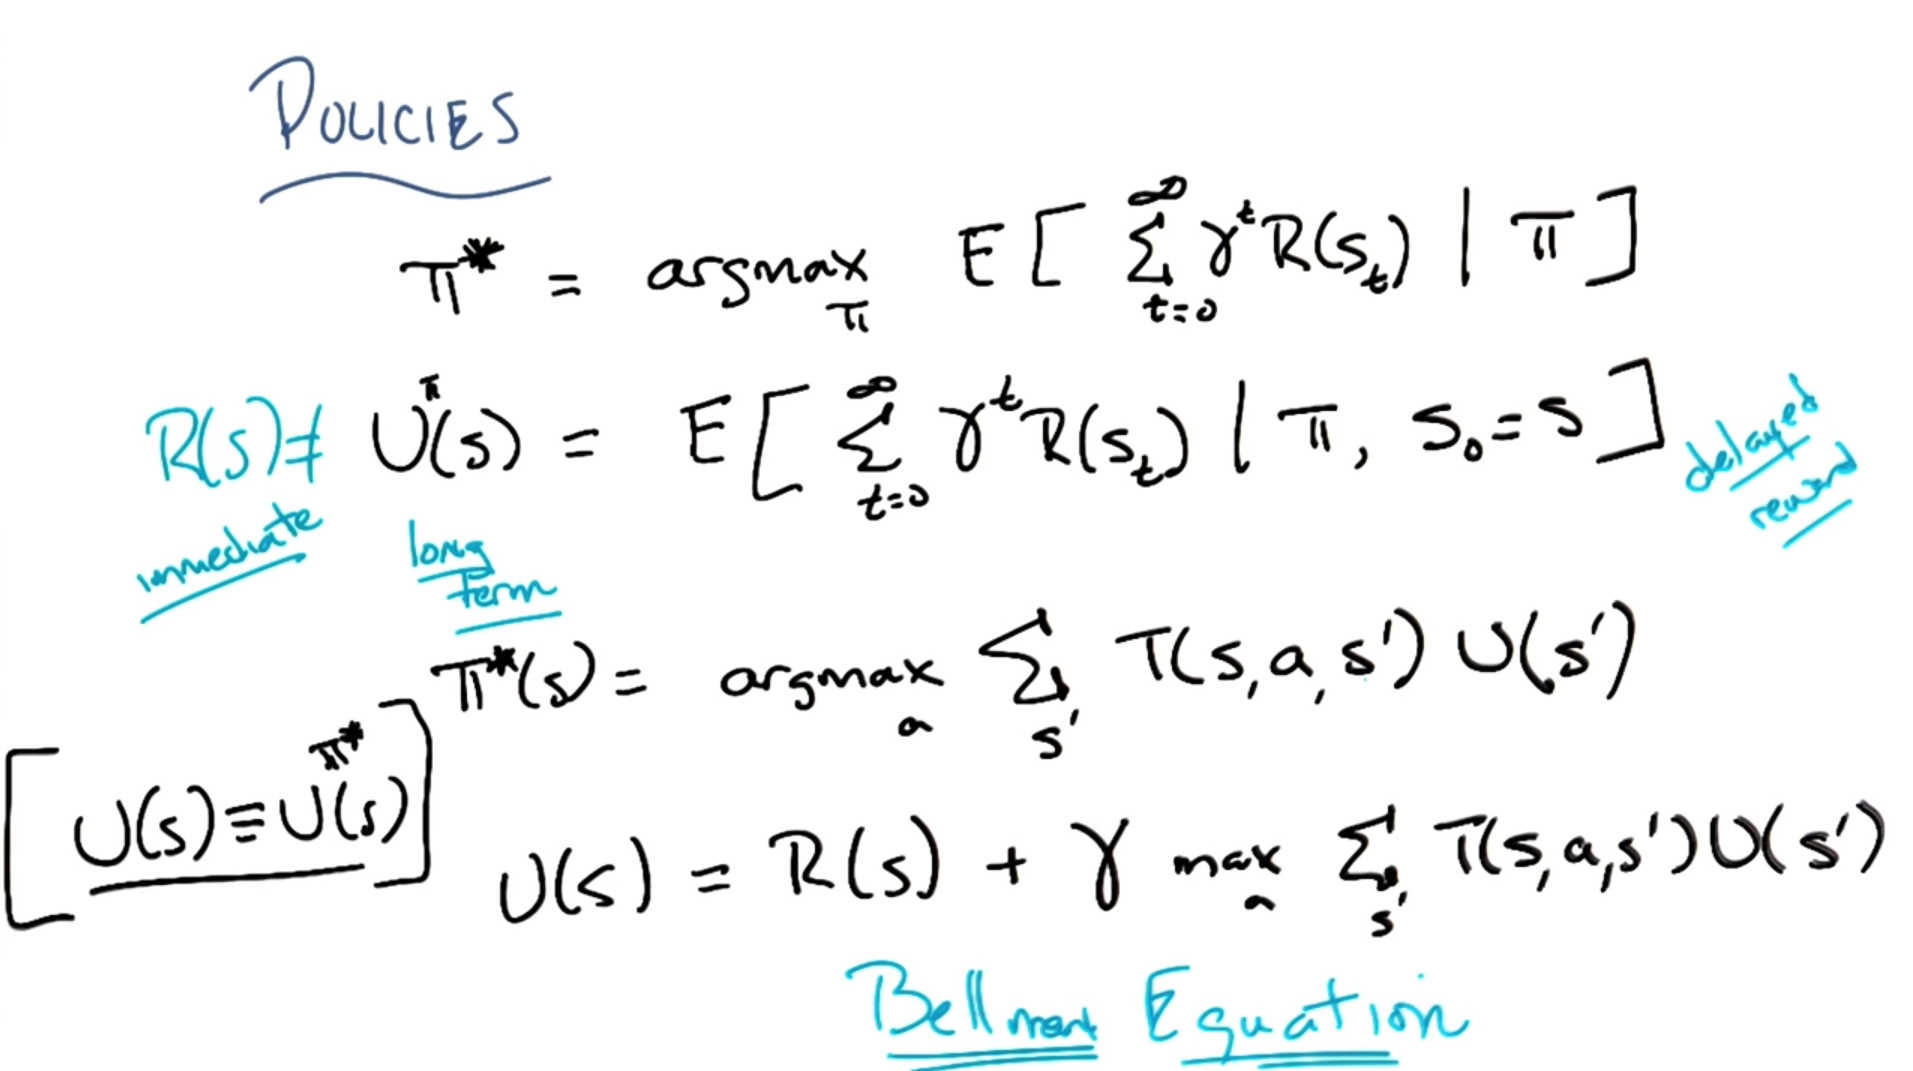 POLICIES
π* = argmax_π E[ ∑_{t=0}^{∞} γ^t R(s_t) | π ]
R(s) ≠ U^π(s) = E[ ∑_{t=0}^{∞} γ^t R(s_t) | π, s_0 = s ]
delayed
reward
immediate
long
term
π*(s) = argmax_a ∑_{s'} T(s,a,s') U(s')
[ U(s) ≡ U^{π*}(s) ]
U(s) = R(s) + γ max_a ∑_{s'} T(s,a,s') U(s')
Bellman Equation